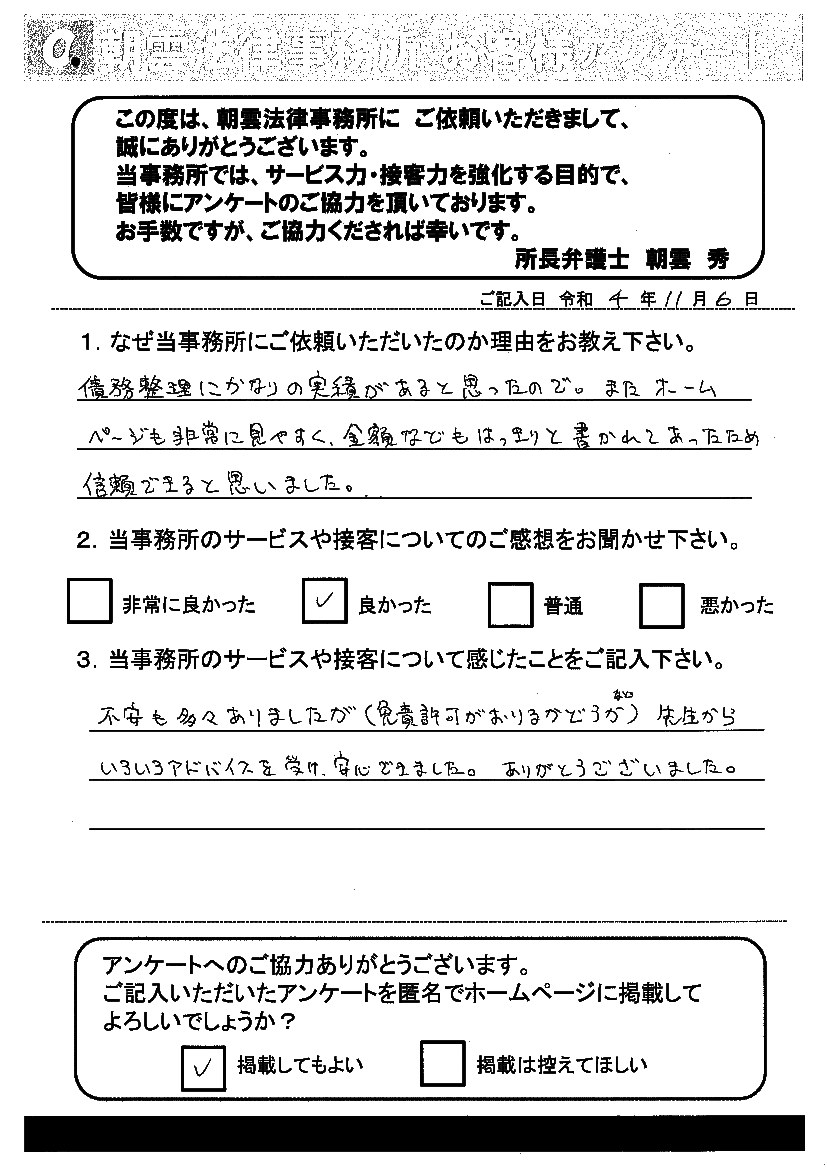 朝雲法律事務所 お客様アンケート
この度は、朝雲法律事務所に ご依頼いただきまして、
誠にありがとうございます。
当事務所では、サービス力・接客力を強化する目的で、
皆様にアンケートのご協力を頂いております。
お手数ですが、ご協力くだされば幸いです。
所長弁護士 朝雲 秀
ご記入日 令和 4 年 11 月 6 日
1. なぜ当事務所にご依頼いただいたのか理由をお教え下さい。
債務整理にかなりの実績があると思ったので。また ホーム
ページも非常に見やすく、金額などもはっきりと書かれてあったため
信頼できると思いました。
2. 当事務所のサービスや接客についてのご感想をお聞かせ下さい。
非常に良かった ✓ 良かった 普通 悪かった
3. 当事務所のサービスや接客について感じたことをご記入下さい。
不安も多々ありましたが(免責許可がおりるかどうかなど)先生から
いろいろアドバイスを受け、安心できました。 ありがとうございました。
アンケートへのご協力ありがとうございます。
ご記入いただいたアンケートを匿名でホームページに掲載して
よろしいでしょうか?
✓ 掲載してもよい 掲載は控えてほしい